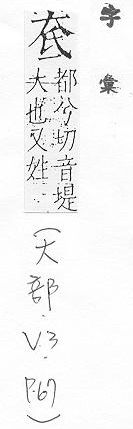 字彙
奃
都兮切音堤
大也又姓
(大部.V.3.P.67)